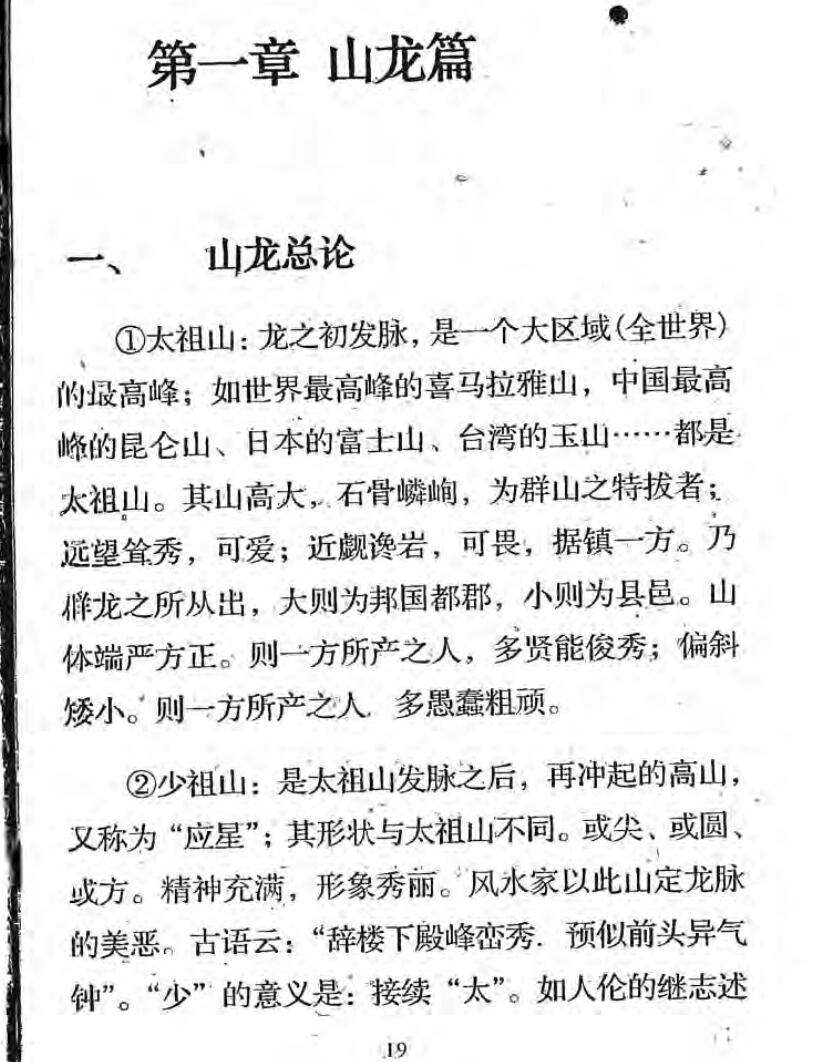 第一章 山龙篇
一、 山龙总论
①太祖山：龙之初发脉，是一个大区域(全世界)
的最高峰；如世界最高峰的喜马拉雅山，中国最高
峰的昆仑山、日本的富士山、台湾的玉山……都是
太祖山。其山高大，石骨嶙峋，为群山之特拔者；
远望耸秀，可爱；近觑谗岩，可畏，据镇一方。乃
群龙之所从出，大则为邦国都郡，小则为县邑。山
体端严方正。则一方所产之人，多贤能俊秀；偏斜
矮小。则一方所产之人 多愚蠢粗顽。
②少祖山：是太祖山发脉之后，再冲起的高山，
又称为“应星”；其形状与太祖山不同。或尖、或圆、
或方。精神充满，形象秀丽。风水家以此山定龙脉
的美恶。古语云：“辞楼下殿峰峦秀. 预似前头异气
钟”。“少”的意义是：接续“太”。如人伦的继志述
19